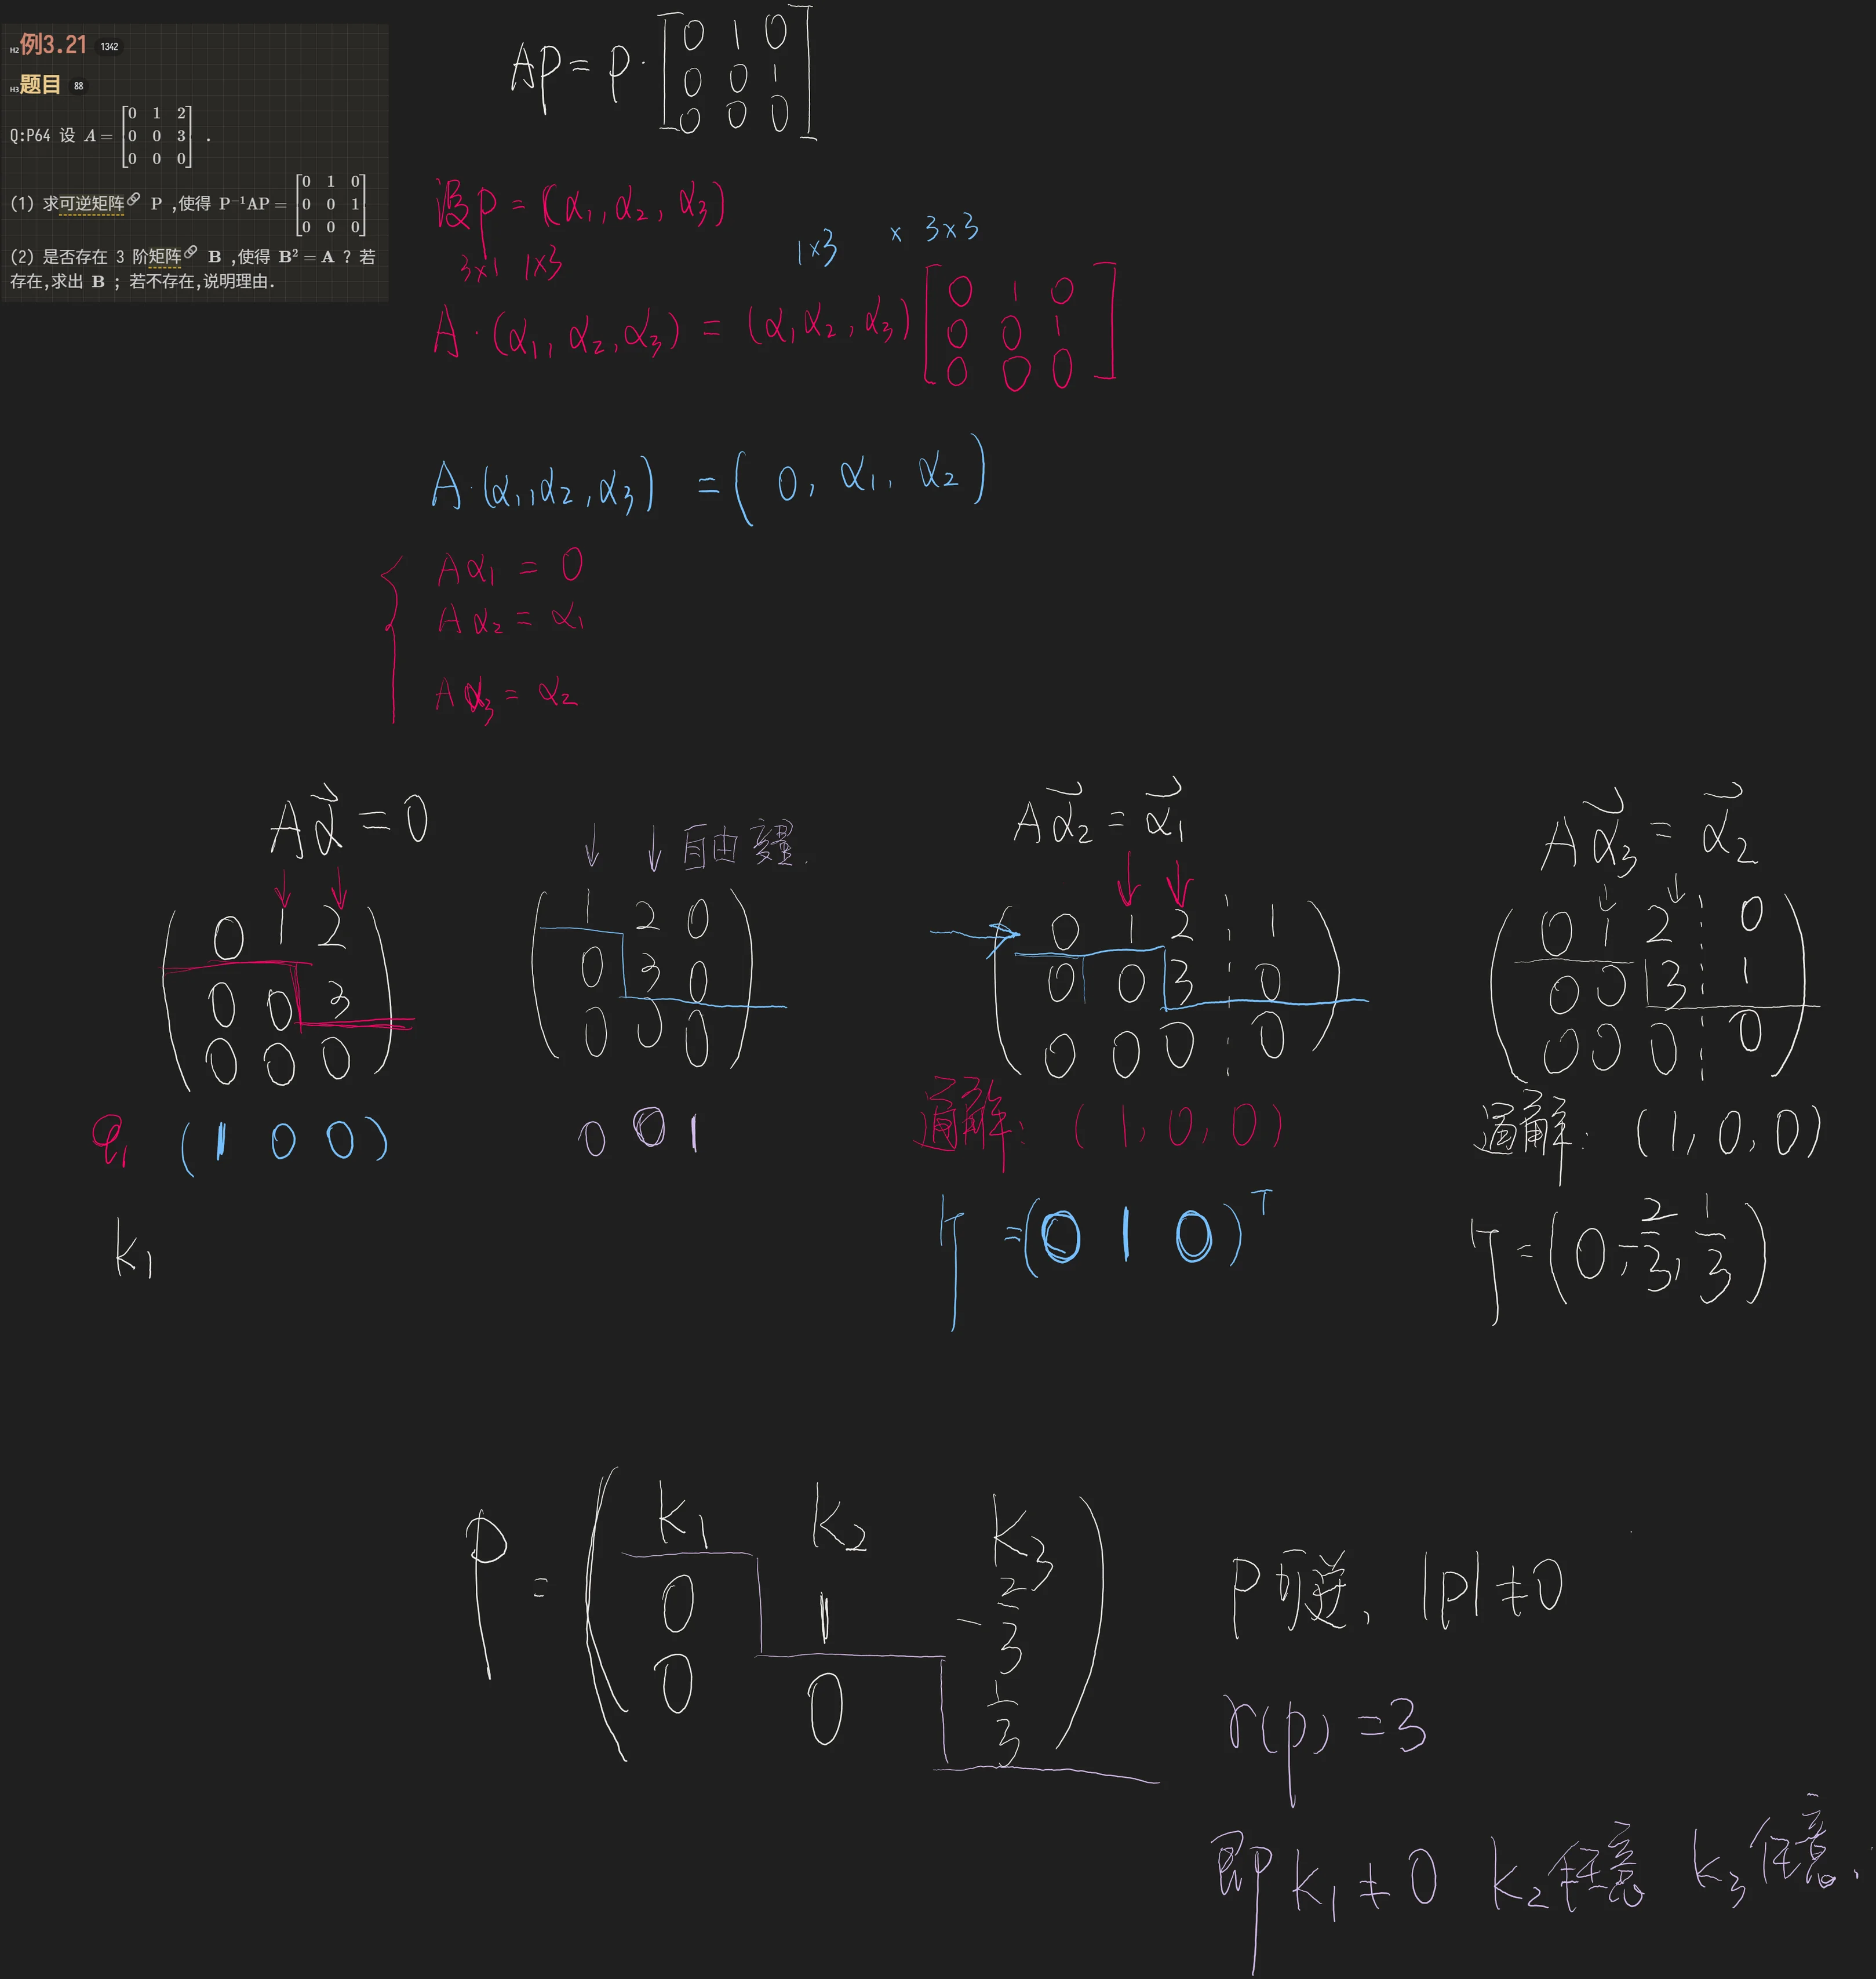 H2 例3.21 1342
H3 题目 88
Q:P64 设 A = [0 1 2
0 0 3
0 0 0] .
(1) 求可逆矩阵 P ,使得 P⁻¹AP = [0 1 0
0 0 1
0 0 0]
(2) 是否存在 3 阶矩阵 B ,使得 B² = A ? 若
存在,求出 B ; 若不存在,说明理由.
AP = P · [0 1 0
0 0 1
0 0 0]
设P = (α₁, α₂, α₃)
3×1 1×3
1×3 × 3×3
A · (α₁, α₂, α₃) = (α₁ α₂, α₃) [0 1 0
0 0 1
0 0 0]
A · (α₁, α₂, α₃) = (0, α₁, α₂)
{ Aα₁ = 0
Aα₂ = α₁
Aα₃ = α₂
Aα⃗ = 0
↓ ↓
(0 1 2
0 0 3
0 0 0)
(1 0 0)
k₁
↓ ↓ 自由变量.
(1 2 0
0 3 0
0 0 0)
0 0 1
Aα⃗₂ = α⃗₁
↓ ↓
(0 1 2 ¦ 1
0 0 3 ¦ 0
0 0 0 ¦ 0)
通解: (1, 0, 0)
η = (0 1 0)ᵀ
Aα⃗₃ = α⃗₂
↓ ↓
(0 1 2 ¦ 0
0 0 3 ¦ 1
0 0 0 ¦ 0)
通解: (1, 0, 0)
η = (0, -2/3, 1/3)
P = (k₁ k₂ k₃
0 1 -2/3
0 0 1/3)
P可逆, |P| ≠ 0
r(P) = 3
即 k₁ ≠ 0 k₂任意 k₃任意.